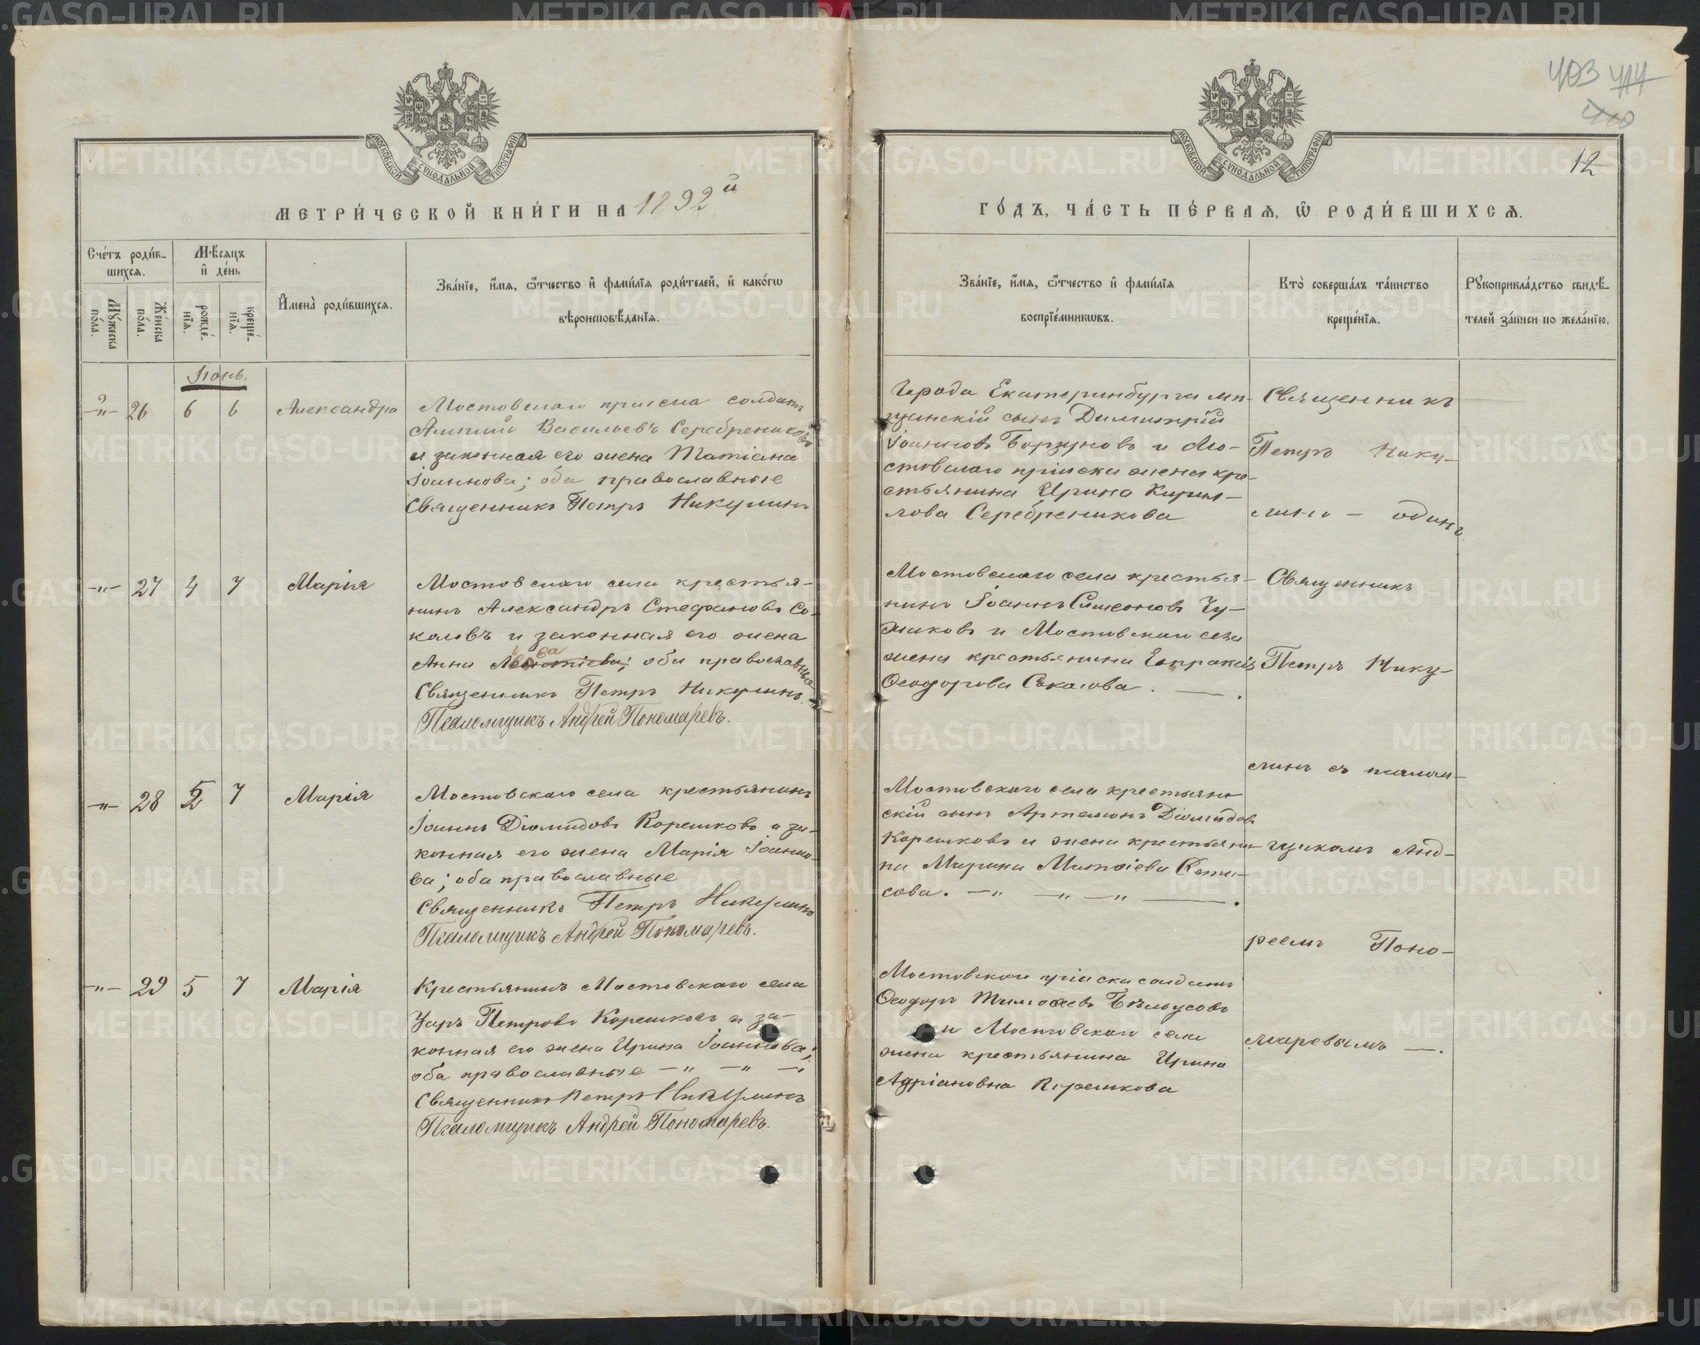 403
12
МЕТРИ́ЧЕСКОЙ КНИ́ГИ НА 1892й
ГО́ДЪ, ЧА́СТЬ ПЕ́РВАЯ, Ѿ РОДИ́ВШИХСЯ.
Сче́тъ роди́в-
шихся.
Му́жеска по́ла.
Же́нска по́ла.
Мѣсяцъ
и де́нь
рожде́-
нїя.
креще́-
нїя.
И́мена роди́вшихся.
Зва́нїе, и́мя, ѻ́тчество и фами́лїя роди́телей, и како́гѡ
вѣроисповѣ́данїя.
Зва́нїе, и́мя, ѻ́тчество и фами́лїя
воспрїе́мникѡвъ.
Кто̀ соверша́лъ та́инство
креще́нїя.
Рꙋкоприкла́дство свидѣ́-
телей за́писи по жела́нїю.
Іюнь.
26 6 6 Александра
Мостовскаго пріиска солдатъ
Васильевъ Серебрениковъ
и законная его жена Татіана
Іоаннова; оба православные
Священникъ Петръ Никулинъ
Города Екатеринбурга мѣ-
щанскій сынъ Димитрій
Іоанновъ Борзуновъ и Мо-
стовскаго пріиска жена кре-
стьянина Ирина Кирил-
лова Серебреникова
Священникъ
Петръ Нику-
линъ – одинъ
27 4 7 Марія
Мостовскаго села крестья-
нинъ Александръ Стефановъ Со-
коловъ и законная его жена
Анна оба православные
Священникъ Петръ Никулинъ
Псаломщикъ Андрей Пономаревъ.
Мостовскаго села крестья-
нинъ Іоаннъ Симеоновъ Чу-
маковъ и Мостовскаго села
жена крестьянина Евпраксія
Ѳеодорова Соколова.
Священникъ
Петръ Нику-
линъ съ псалом-
28 5 7 Марія
Мостовскаго села крестьянинъ
Іоаннъ Діомидовъ Корешковъ и за-
конная его жена Марія Іоанно-
ва; оба православные
Священникъ Петръ Никулинъ
Псаломщикъ Андрей Пономаревъ.
Мостовскаго села крестьян-
скій сынъ Артемонъ Діомидовъ
Корешковъ и жена крестьяни-
на Марина Матѳіева
сова.
щикомъ Анд-
реемъ Поно-
29 5 7 Марія
Крестьянинъ Мостовскаго села
Уаръ Петровъ Корешковъ и за-
конная его жена Ирина Іоаннова;
оба православные
Священникъ Петръ Никулинъ
Псаломщикъ Андрей Пономаревъ.
Мостовскаго пріиска солдатъ
Ѳеодоръ Тимоѳеевъ Бѣлоусовъ
и Мостовскаго села
жена крестьянина Ирина
Адріановна Корешкова
маревымъ —.
METRIKI.GASO-URAL.RU